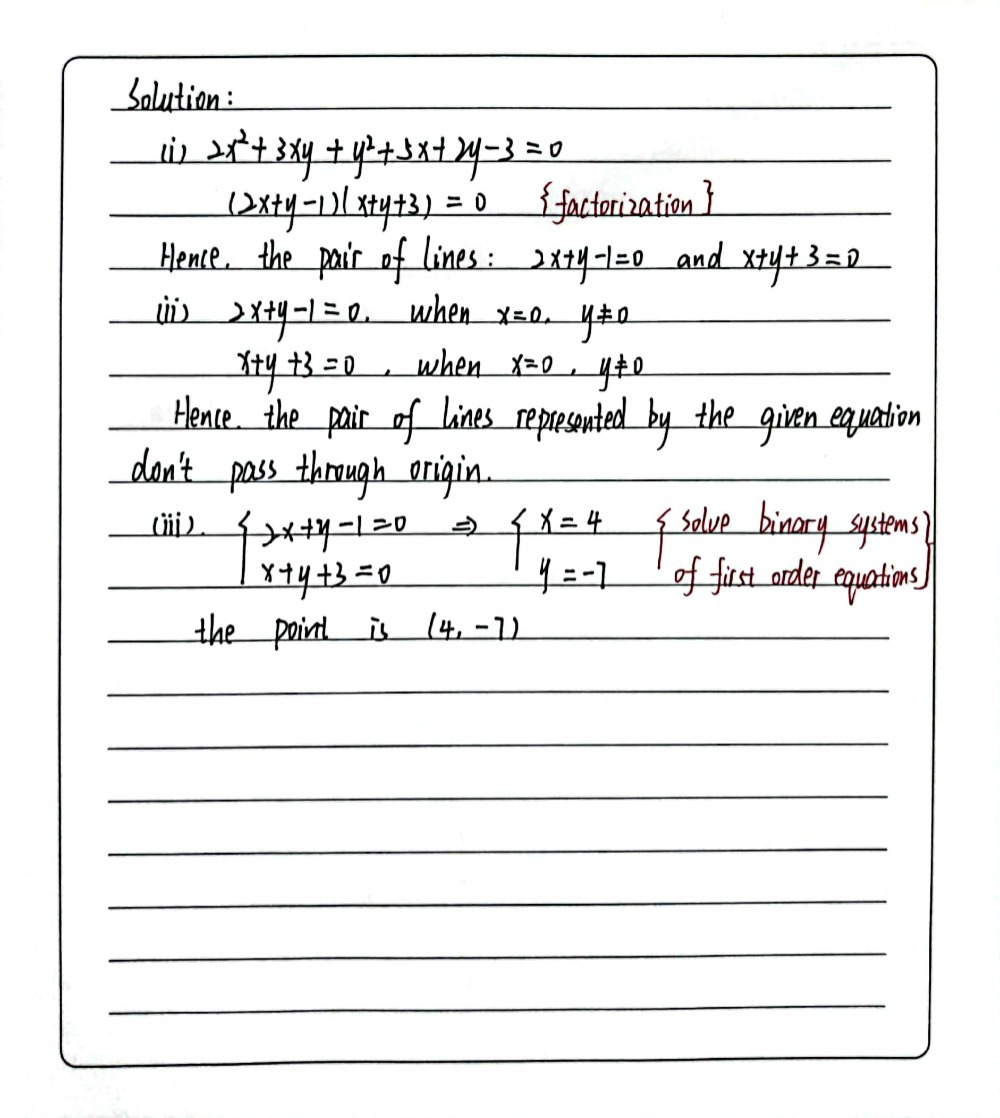 Solution:
(i) 2x²+3xy+y²+5x+2y-3=0
(2x+y-1)(x+y+3)=0 {factorization}
Hence, the pair of lines: 2x+y-1=0 and x+y+3=0
(ii) 2x+y-1=0. when x=0, y≠0
x+y+3=0, when x=0, y≠0
Hence. the pair of lines represented by the given equation
don't pass through origin.
(iii). {2x+y-1=0 ⇒ {x=4 {solve binary systems}
x+y+3=0 y=-7 of first order equations}
the point is (4,-7)